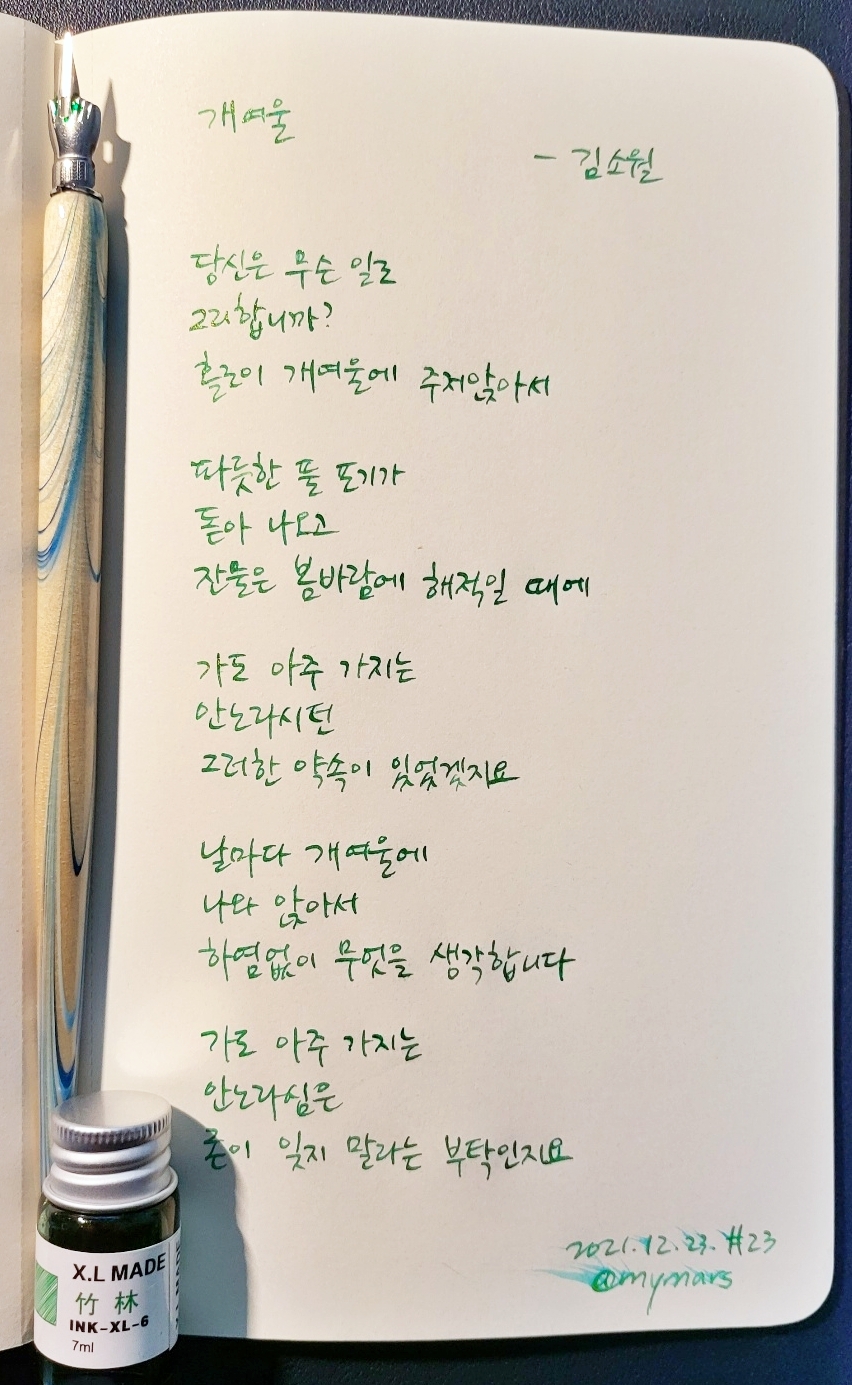 개여울
- 김소월
당신은 무슨 일로
그리합니까?
홀로이 개여울에 주저앉아서
파릇한 풀 포기가
돋아 나오고
잔물은 봄바람에 해적일 때에
가도 아주 가지는
안노라시던
그러한 약속이 있었겠지요
날마다 개여울에
나와 앉아서
하염없이 무엇을 생각합니다
가도 아주 가지는
안노라심은
굳이 잊지 말라는 부탁인지요
2021.12.23. #23
@mymars
X.L MADE
竹林
INK-XL-6
7ml